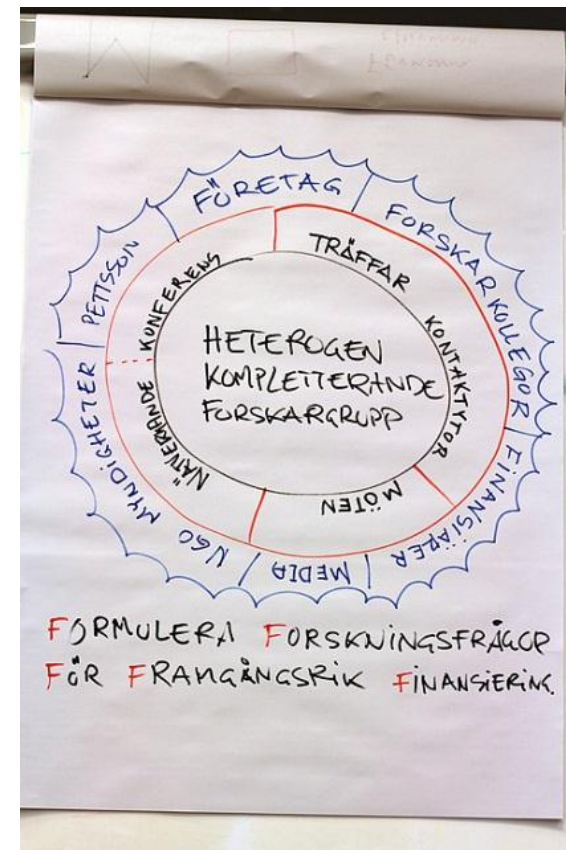 FÖRETAG
FORSKARKOLLEGOR
FINANSIÄRER
MEDIA
NGO
MYNDIGHETER
PETTSSON
TRÄFFAR
KONTAKTYTOR
MÖTEN
NÄTVERKANDE
KONFERENS
HETEROGEN
KOMPLETTERANDE
FORSKARGRUPP
FORMULERA FORSKNINGSFRÅGOR
FÖR FRAMGÅNGSRIK FINANSIERING.